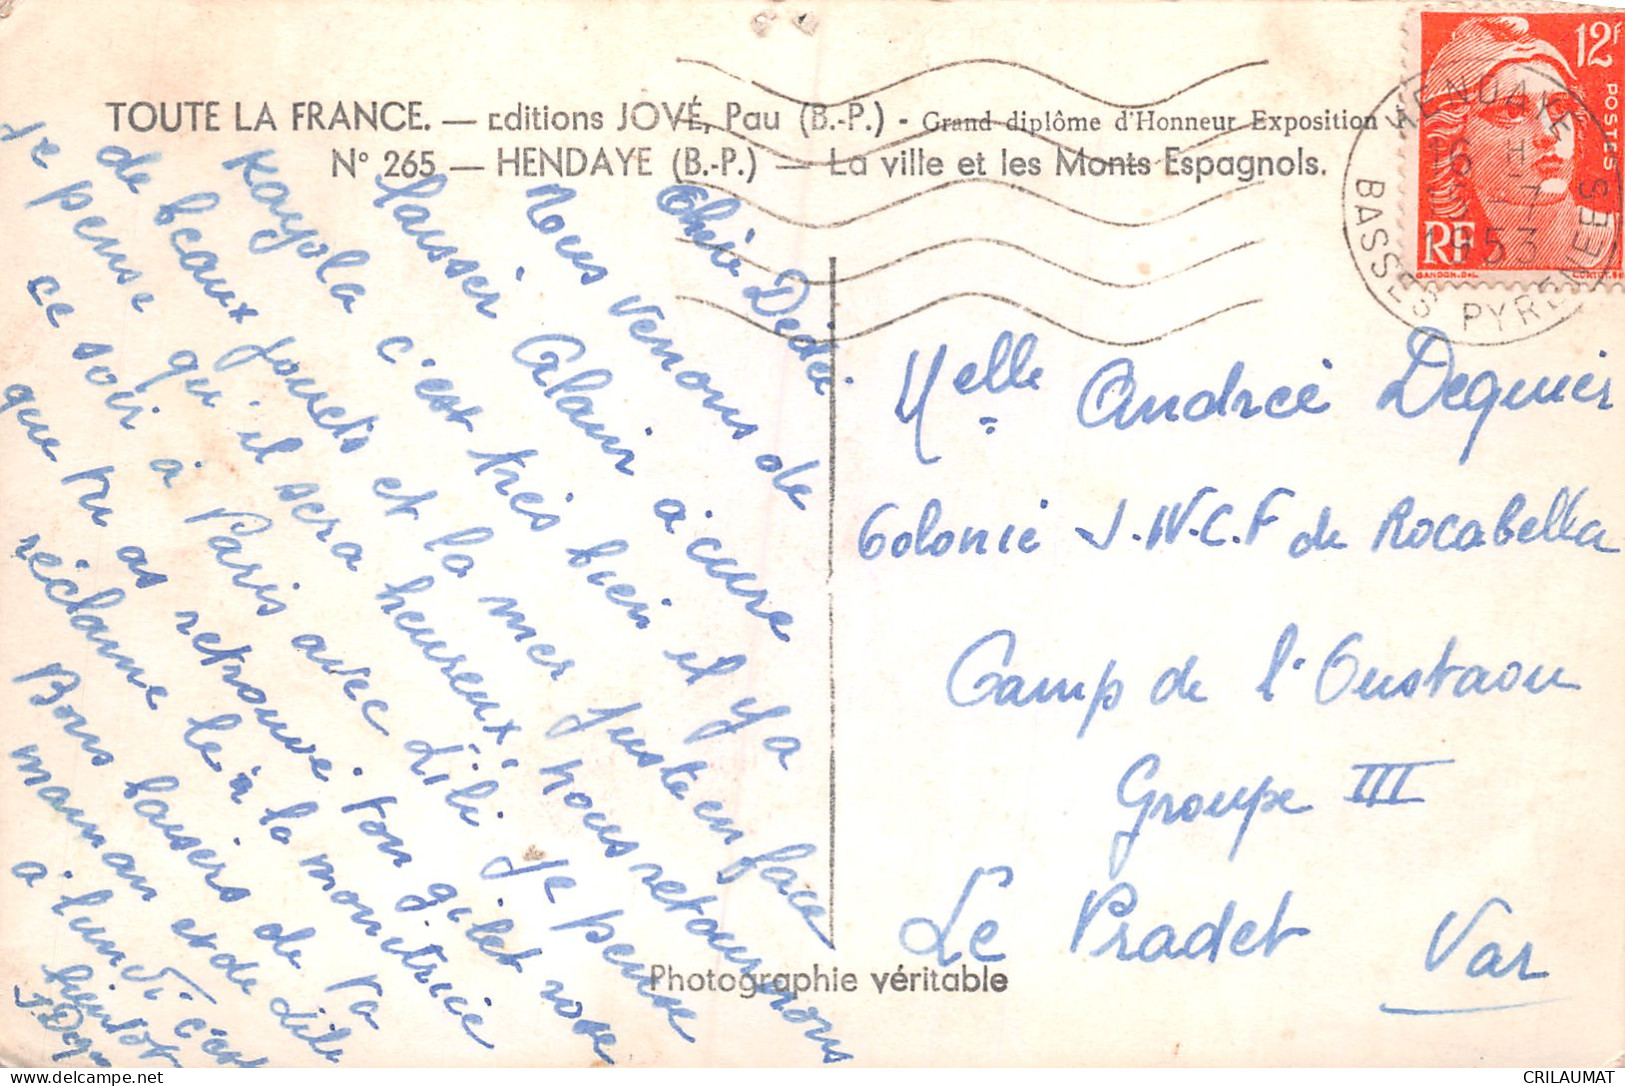 TOUTE LA FRANCE. — Editions JOVÉ, Pau (B.-P.) - Grand diplôme d'Honneur Exposition
N° 265 — HENDAYE (B.-P.) — La ville et les Monts Espagnols.
12F
POSTES
RF
GANDON.DEL.
HENDAYE
16 H
1953
BASSES PYRENEES
Chère Dédée
Nous venons de
laisser Alain à cure
Kayola c'est très bien il y a
de beaux jouets et la mer juste en face
Je pense qu'il sera heureux, nous retournons
ce soir à Paris avec Lili je pense
que tu as retrouvé ton gilet rose
réclame le à la monitrice
Bons baisers de Ta
maman et de Lili
à lundi c'est
bientôt
Melle Andrée Dequier
Colonie J.N.C.F de Rocabella
Camp de l'Oustaou
Groupe IIII
Le Pradet Var
Photographie véritable
CRILAUMAT